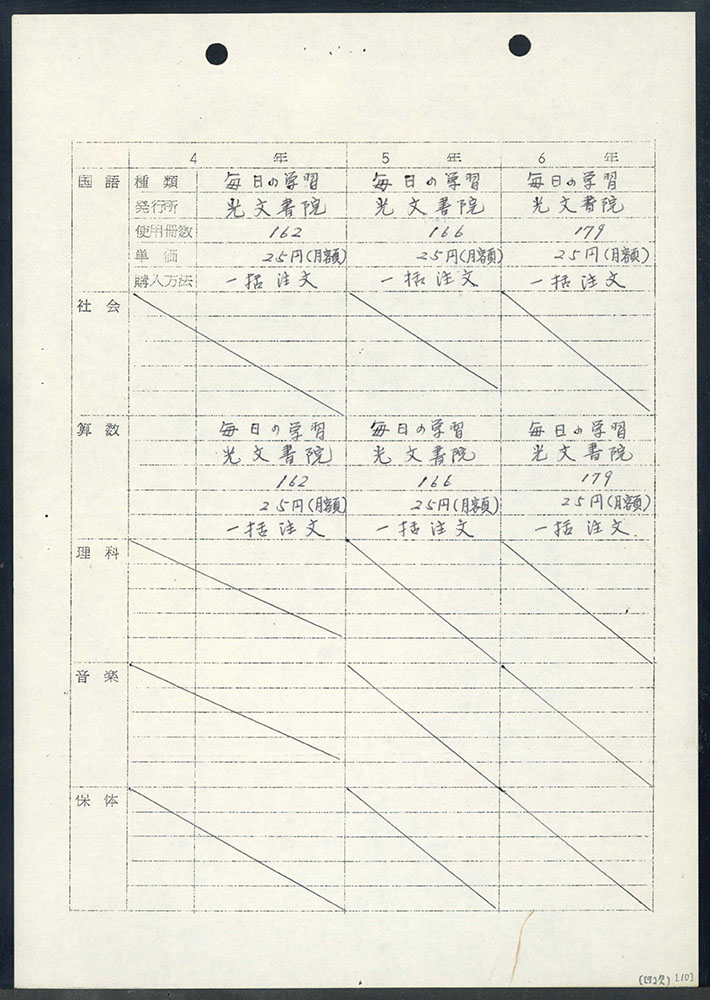 4 年 5 年 6 年
国語 種類 毎日の学習 毎日の学習 毎日の学習
発行所 光文書院 光文書院 光文書院
使用冊数 162 166 179
単価 25円(月額) 25円(月額) 25円(月額)
購入方法 一括注文 一括注文 一括注文
社会
算数 毎日の学習 毎日の学習 毎日の学習
光文書院 光文書院 光文書院
162 166 179
25円(月額) 25円(月額) 25円(月額)
一括注文 一括注文 一括注文
理科
音楽
保体
[10]